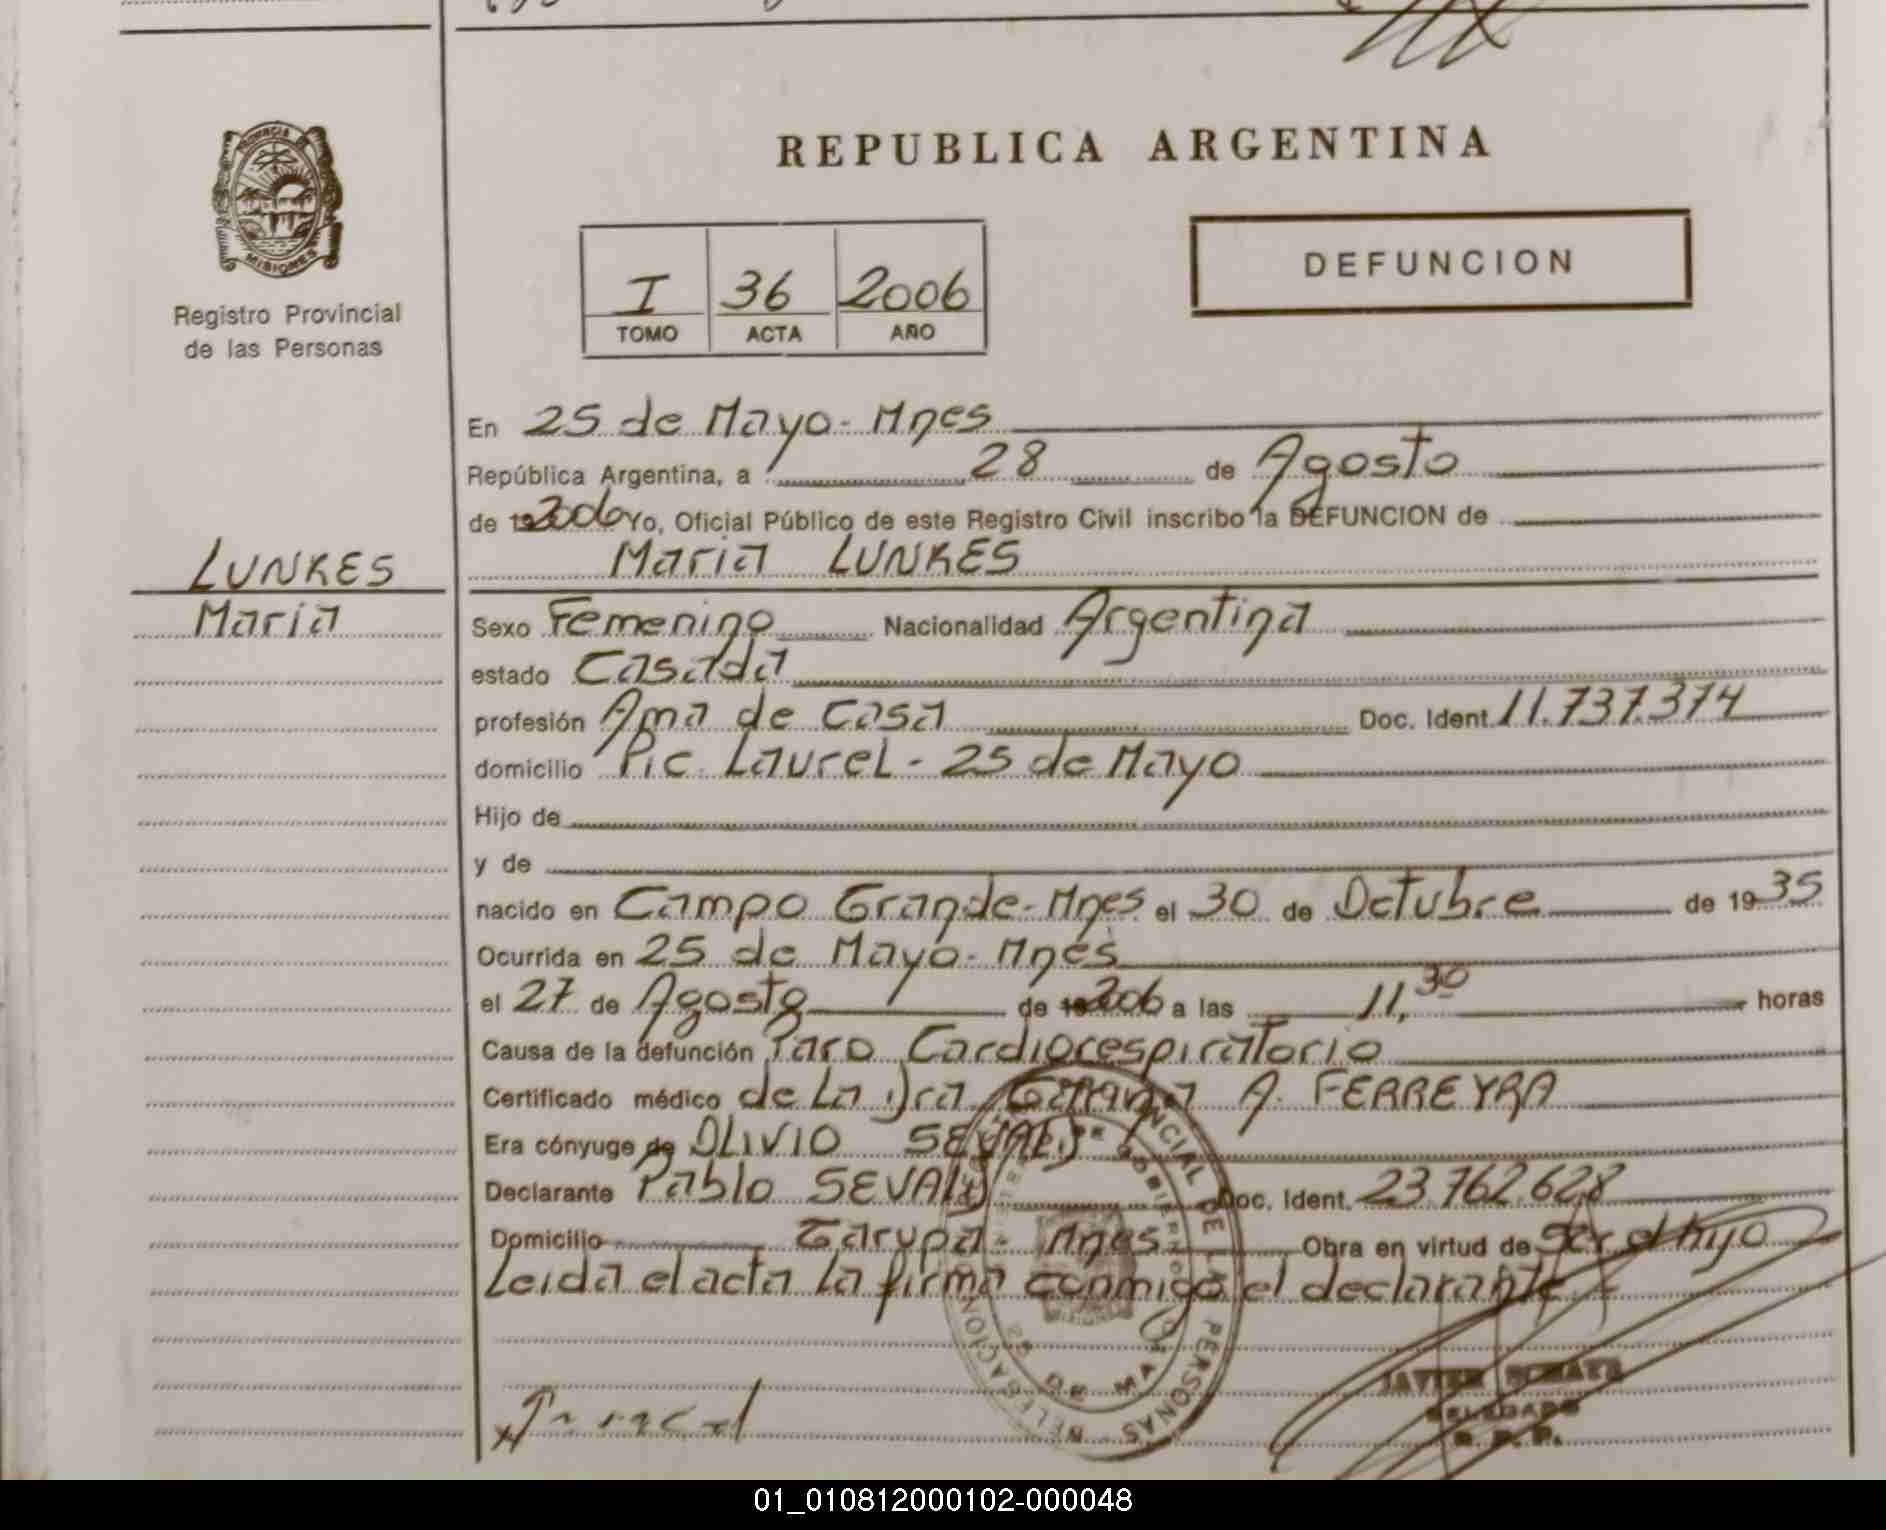 REPUBLICA ARGENTINA
PROVINCIA
MISIONES
Registro Provincial
de las Personas
DEFUNCION
I 36 2006
TOMO ACTA AÑO
En 25 de Mayo - Mnes
República Argentina, a 28 de Agosto
de 2006 Yo, Oficial Público de este Registro Civil inscribo la DEFUNCION de
LUNKES
Maria LUNKES
Maria
Sexo Femenino Nacionalidad Argentina
estado Casada
profesión Ama de Casa Doc. Ident. 11.737.374
domicilio Pic. Laurel - 25 de Mayo
Hijo de
y de
nacido en Campo Grande - Mnes el 30 de Octubre de 1935
Ocurrida en 25 de Mayo - Mnes
el 27 de Agosto de 2006 a las 11,30 horas
Causa de la defunción Paro Cardiorespiratorio
Certificado médico de La Dra A. FERREYRA
Era cónyuge de OLIVIO
Declarante Pablo Doc. Ident. 23.762.628
Domicilio Garupa - Mnes Obra en virtud de ser el hijo
Leida el acta la firma conmigo el declarante.-
DELEGACION 25 DE MAYO
PERSONAS
JAVIER
DELEGADO
R. P. P.
01_010812000102-000048